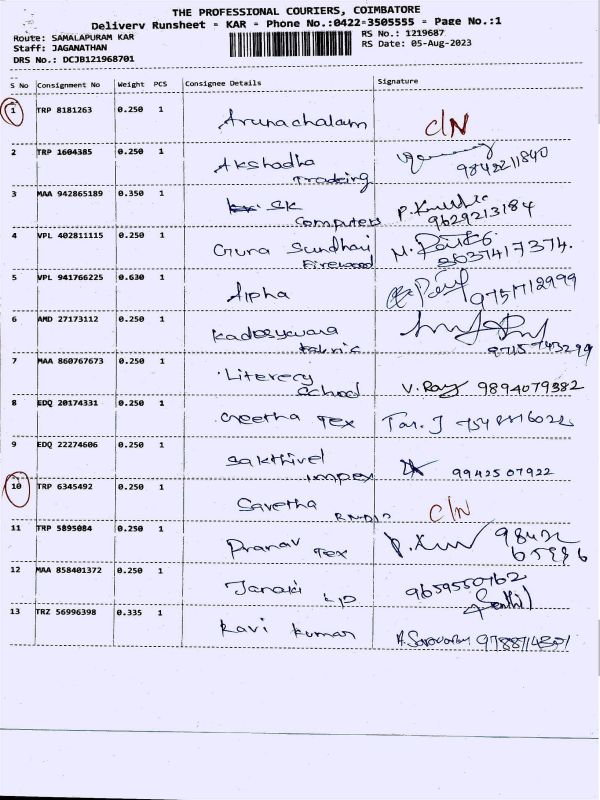 THE PROFESSIONAL COURIERS, COIMBATORE
Delivery Runsheet - KAR - Phone No.:0422-3505555 - Page No.:1
Route: SAMALAPURAM KAR
RS No.: 1219687
Staff: JAGANATHAN
RS Date: 05-Aug-2023
DRS No.: DCJB121968701
S No Consignment No Weight PCS Consignee Details Signature
1 TRP 8181263 0.250 1 Arunachalam C/N
2 TRP 1604385 0.250 1 Akshadha
Tradeing 9842211840
3 MAA 942865189 0.350 1 SK
Computers 9629213184
4 VPL 402811115 0.250 1 Guru Sundhari
Firewood 9637417374.
5 VPL 941766225 0.630 1 Alpha 9751712999
6 AMD 27173112 0.250 1 Kadesywara
fabric 9715743299
7 MAA 860767673 0.250 1 Literecy
School V. Ray 9894079382
8 EDQ 20174331 0.250 1 Geetha Tex
9 EDQ 22274606 0.250 1 Sakthivel
Impex 9942507922
10 TRP 6345492 0.250 1 Savetha
C/N
11 TRP 5895084 0.250 1 Pranav Tex
12 MAA 858401372 0.250 1 Janaki 9659550762
Senthil
13 TRZ 56996398 0.335 1 Ravi Kumar